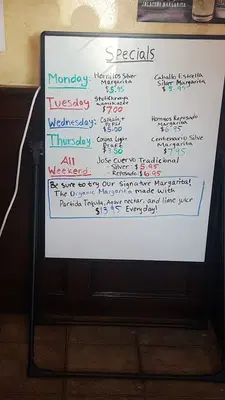 JALAPEÑO MARGARITA
Specials
Monday: Hornitos Silver Margarita $5.95
Caballo Estrella Silver Margarita $5.95
Tuesday $7.00
Wednesday: $5.00
Hornitos Reposado Margarita $6.95
Thursday: Corona Light Draft $3.50
Centenario Silver Margarita $7.95
All Weekend: Jose Cuervo Tradicional
- Silver - $5.95
- Reposado - $6.95
Be sure to try our signature Margarita!
The Organic Margarita made with
Partida Tequila, Agave nectar, and lime juice
$13.95 Everyday!